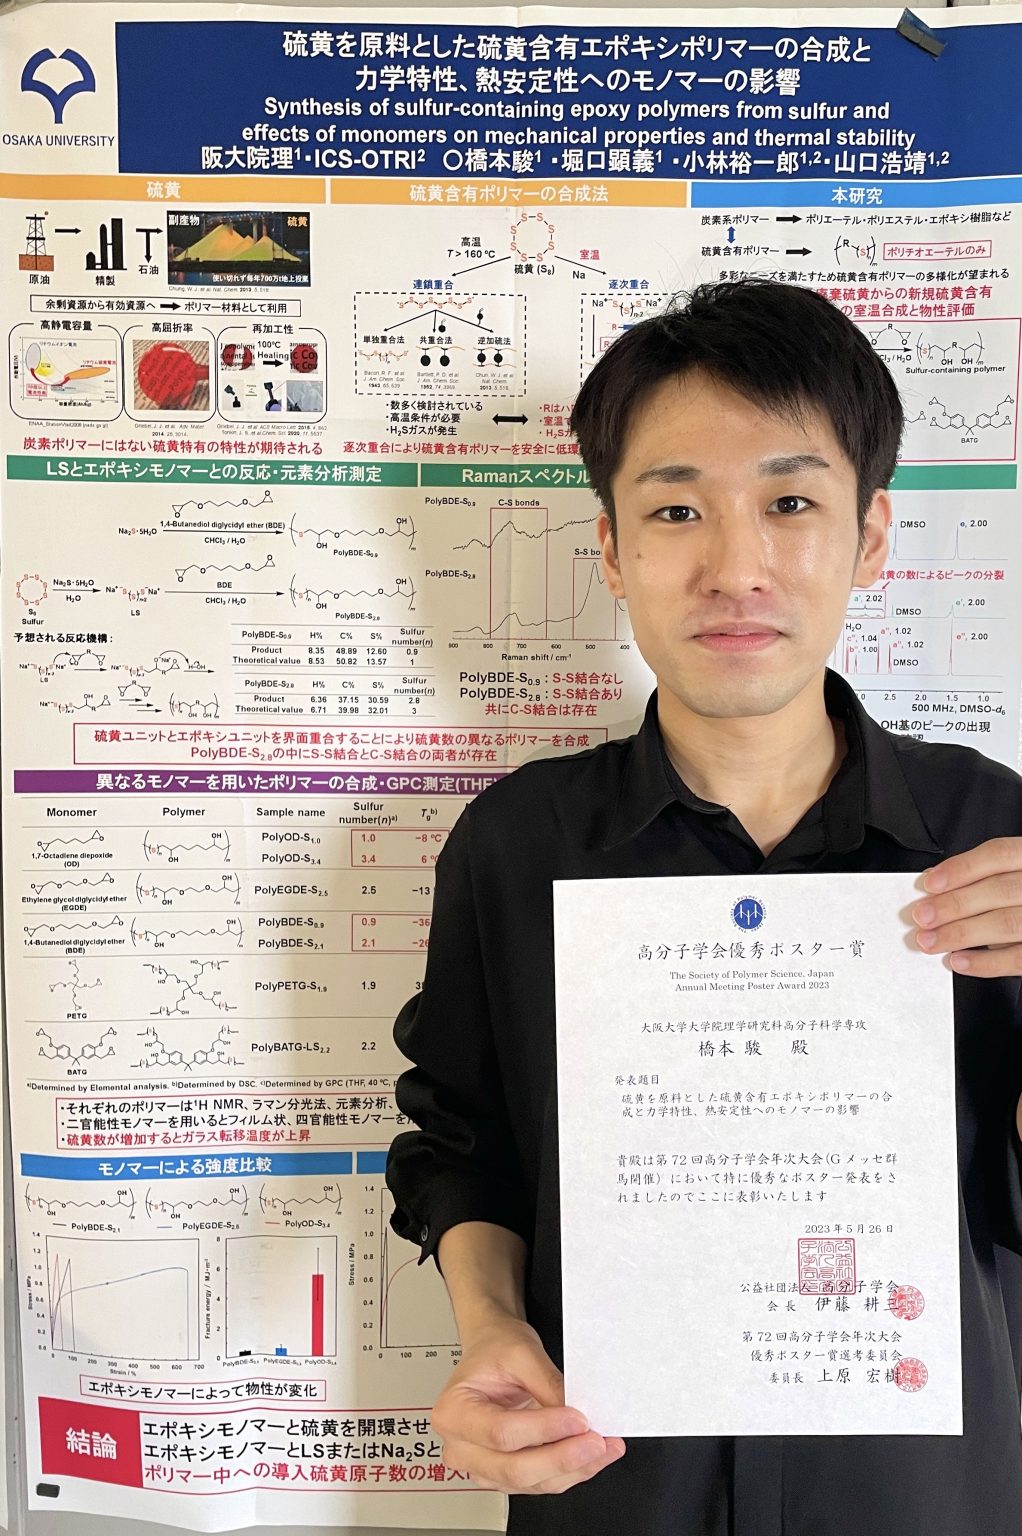 硫黄を原料とした硫黄含有エポキシポリマーの合成と
力学特性、熱安定性へのモノマーの影響
Synthesis of sulfur-containing epoxy polymers from sulfur and
effects of monomers on mechanical properties and thermal stability
阪大院理1・ICS-OTRI2 〇橋本駿1・堀口顕義1・小林裕一郎1,2・山口浩靖1,2
OSAKA UNIVERSITY
硫黄
原油
精製
石油
副産物
硫黄
使い切れず毎年700万t地上投棄
余剰資源から有効資源へ
ポリマー材料として利用
高静電容量
高屈折率
再加工性
100℃
Healing
炭素ポリマーにはない硫黄特有の特性が期待される
硫黄含有ポリマーの合成法
高温
T > 160 ºC
硫黄 (S8)
室温
Na
連鎖重合
逐次重合
単独重合法
共重合法
逆加硫法
・数多く検討されている
・高温条件が必要
・H2Sガスが発生
逐次重合により硫黄含有ポリマーを安全に低環
本研究
炭素系ポリマー
ポリエーテル・ポリエステル・エポキシ樹脂など
硫黄含有ポリマー
ポリチオエーテルのみ
多彩なニーズを満たすため硫黄含有ポリマーの多様化が望まれる
廃棄硫黄からの新規硫黄含有
の室温合成と物性評価
Sulfur-containing polymer
BATG
LSとエポキシモノマーとの反応・元素分析測定
Na2S・5H2O
1,4-Butanediol diglycidyl ether (BDE)
CHCl3 / H2O
PolyBDE-S0.9
S8
Sulfur
Na2S・5H2O
H2O
LS
BDE
CHCl3 / H2O
PolyBDE-S2.8
予想される反応機構：
PolyBDE-S0.9 H% C% S% Sulfur number(n)
Product 8.35 48.89 12.60 0.9
Theoretical value 8.53 50.82 13.57 1
PolyBDE-S2.8 H% C% S% Sulfur number(n)
Product 6.36 37.15 30.59 2.8
Theoretical value 6.71 39.98 32.01 3
硫黄ユニットとエポキシユニットを界面重合することにより硫黄数の異なるポリマーを合成
PolyBDE-S2.8の中にS-S結合とC-S結合の両者が存在
Ramanスペクトル
PolyBDE-S0.9
C-S bonds
S-S bo
PolyBDE-S2.8
900 800 700 600 500 400
Raman shift / cm-1
PolyBDE-S0.9：S-S結合なし
PolyBDE-S2.8：S-S結合あり
共にC-S結合は存在
DMSO
e, 2.00
硫黄の数によるピークの分裂
a', 2.02
DMSO
e', 2.00
H2O
a'', 1.02
c'', 1.04
a'', 1.02
b'', 1.00
DMSO
e'', 2.00
2.5 2.0 1.5 1.0
500 MHz, DMSO-d6
OH基のピークの出現
異なるモノマーを用いたポリマーの合成・GPC測定(THF)
Monomer Polymer Sample name Sulfur number(n)a) Tgb)
1,7-Octadiene diepoxide
(OD)
PolyOD-S1.0 1.0 −8 ºC
PolyOD-S3.4 3.4
Ethylene glycol diglycidyl ether
(EGDE)
PolyEGDE-S2.5 2.5 −13
1,4-Butanediol diglycidyl ether
(BDE)
PolyBDE-S0.9 0.9 −36
PolyBDE-S2.1 2.1
PETG
PolyPETG-S1.9 1.9
BATG
PolyBATG-LS2.2 2.2
a)Determined by Elemental analysis. b)Determined by DSC. c)Determined by GPC (THF, 40 ºC,
・それぞれのポリマーは1H NMR、ラマン分光法、元素分析、
・二官能性モノマーを用いるとフィルム状、四官能性モノマーを
・硫黄数が増加するとガラス転移温度が上昇
モノマーによる強度比較
PolyBDE-S2.1
PolyEGDE-S2.5
PolyOD-S3.4
Stress / MPa
Strain / %
Fracture energy / MJ・m-3
Stress / MPa
エポキシモノマーによって物性が変化
結論
エポキシモノマーと硫黄を開環させ
エポキシモノマーとLSまたはNa2Sと
ポリマー中への導入硫黄原子数の増大
高分子学会優秀ポスター賞
The Society of Polymer Science, Japan
Annual Meeting Poster Award 2023
大阪大学大学院理学研究科高分子科学専攻
橋本 駿 殿
発表題目
硫黄を原料とした硫黄含有エポキシポリマーの合
成と力学特性、熱安定性へのモノマーの影響
貴殿は第72回高分子学会年次大会(Gメッセ群
馬開催）において特に優秀なポスター発表をさ
れましたのでここに表彰いたします
2023年5月26日
公益社団法人 高分子学会
会長 伊藤 耕三
第72回高分子学会年次大会
優秀ポスター賞選考委員会
委員長 上原 宏樹